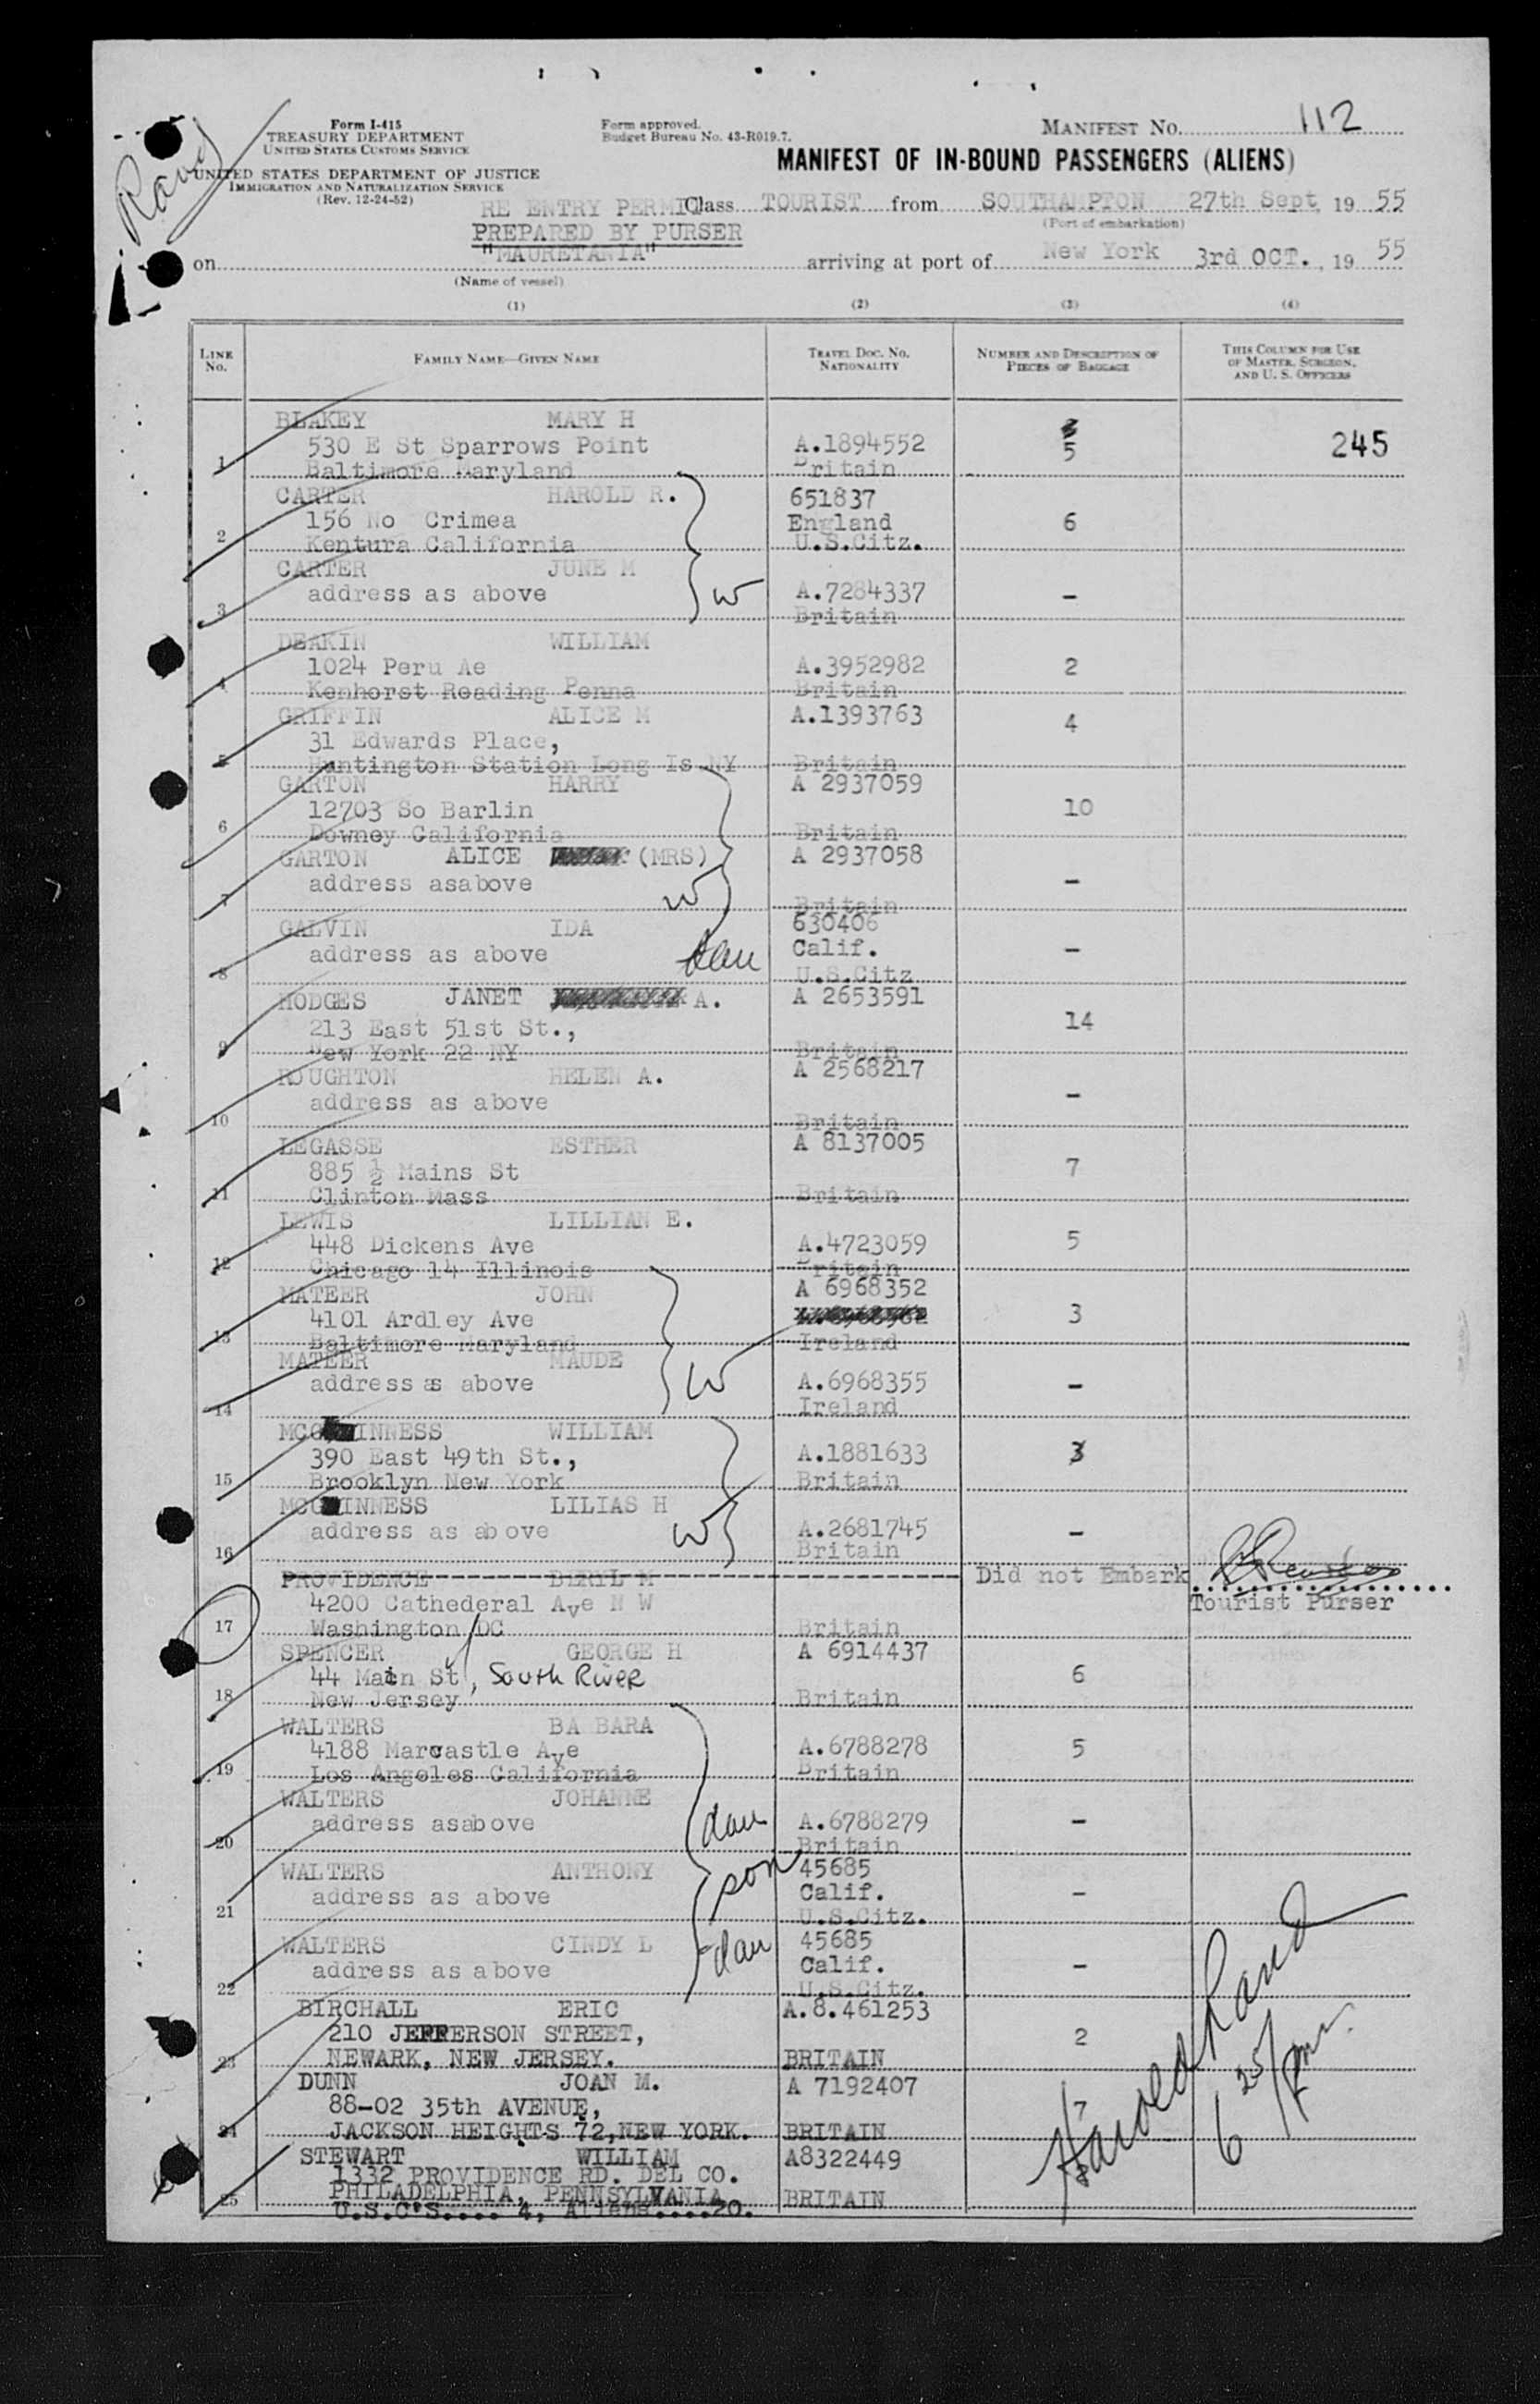 Rand
Form I-415
TREASURY DEPARTMENT
UNITED STATES CUSTOMS SERVICE
UNITED STATES DEPARTMENT OF JUSTICE
IMMIGRATION AND NATURALIZATION SERVICE
(Rev. 12-24-52)
Form approved.
Budget Bureau No. 43-R019.7.
MANIFEST NO. 112
MANIFEST OF IN-BOUND PASSENGERS (ALIENS)
RE ENTRY PERMIT Class TOURIST from SOUTHAMPTON 27th Sept, 19 55
(Port of embarkation)
PREPARED BY PURSER
on "MAURETANIA" arriving at port of New York 3rd OCT., 19 55
(Name of vessel)
(1) (2) (3) (4)
LINE No. FAMILY NAME—GIVEN NAME TRAVEL DOC. NO. NATIONALITY NUMBER AND DESCRIPTION OF PIECES OF BAGGAGE THIS COLUMN FOR USE OF MASTER, SURGEON, AND U. S. OFFICERS
BLAKEY MARY H
530 E St Sparrows Point A.1894552 5 245
1 Baltimore Maryland Britain
CARTER HAROLD R. 651837
156 No Crimea England 6
2 Kentura California U.S.Citz.
CARTER JUNE M
address as above w A.7284337 -
3 Britain
DEAKIN WILLIAM
1024 Peru Ae A.3952982 2
4 Kenhorst Reading Penna Britain
GRIFFIN ALICE M A.1393763 4
31 Edwards Place,
5 Huntington Station Long Is NY Britain
GARTON HARRY A 2937059
12703 So Barlin 10
6 Downey California Britain
GARTON ALICE (MRS) A 2937058
address asabove -
7 w Britain
GALVIN IDA 630406
address as above dau Calif. -
8 U.S.Citz
HODGES JANET A. A 2653591
213 East 51st St., 14
9 New York 22 NY Britain
ROUGHTON HELEN A. A 2568217
address as above -
10 Britain
LEGASSE ESTHER A 8137005
885 ½ Mains St 7
11 Clinton Mass Britain
LEWIS LILLIAN E.
448 Dickens Ave A.4723059 5
12 Chicago 14 Illinois Britain
MATEER JOHN A 6968352
4101 Ardley Ave 3
13 Baltimore Maryland Ireland
MATEER MAUDE
address as above w A.6968355 -
14 Ireland
MCGINNESS WILLIAM
390 East 49th St., A.1881633 3
15 Brooklyn New York Britain
MCGINNESS LILIAS H
address as above w A.2681745 -
16 Britain
PROVIDENCE BERYL M Did not Embark
4200 Cathederal Ave N W Tourist Purser
17 Washington DC Britain
SPENCER GEORGE H A 6914437
44 Main St, South River 6
18 New Jersey Britain
WALTERS BA BARA
4188 Marcastle Ave A.6788278 5
19 Los Angeles California Britain
WALTERS JOHANNE
address asabove dau A.6788279 -
20 Britain
WALTERS ANTHONY 45685
address as above son Calif. -
21 U.S.Citz.
WALTERS CINDY L 45685
address as above dau Calif. -
22 U.S.Citz.
BIRCHALL ERIC A.8.461253
210 JEFFERSON STREET, 2
23 NEWARK, NEW JERSEY. BRITAIN
DUNN JOAN M. A 7192407
88-02 35th AVENUE, 7
24 JACKSON HEIGHTS 72, NEW YORK. BRITAIN
STEWART WILLIAM A8322449
1332 PROVIDENCE RD. DEL CO.
25 PHILADELPHIA, PENNSYLVANIA BRITAIN
U.S.C'S.... 4, Aliens....20.
Harold Rand
6 25/pm.